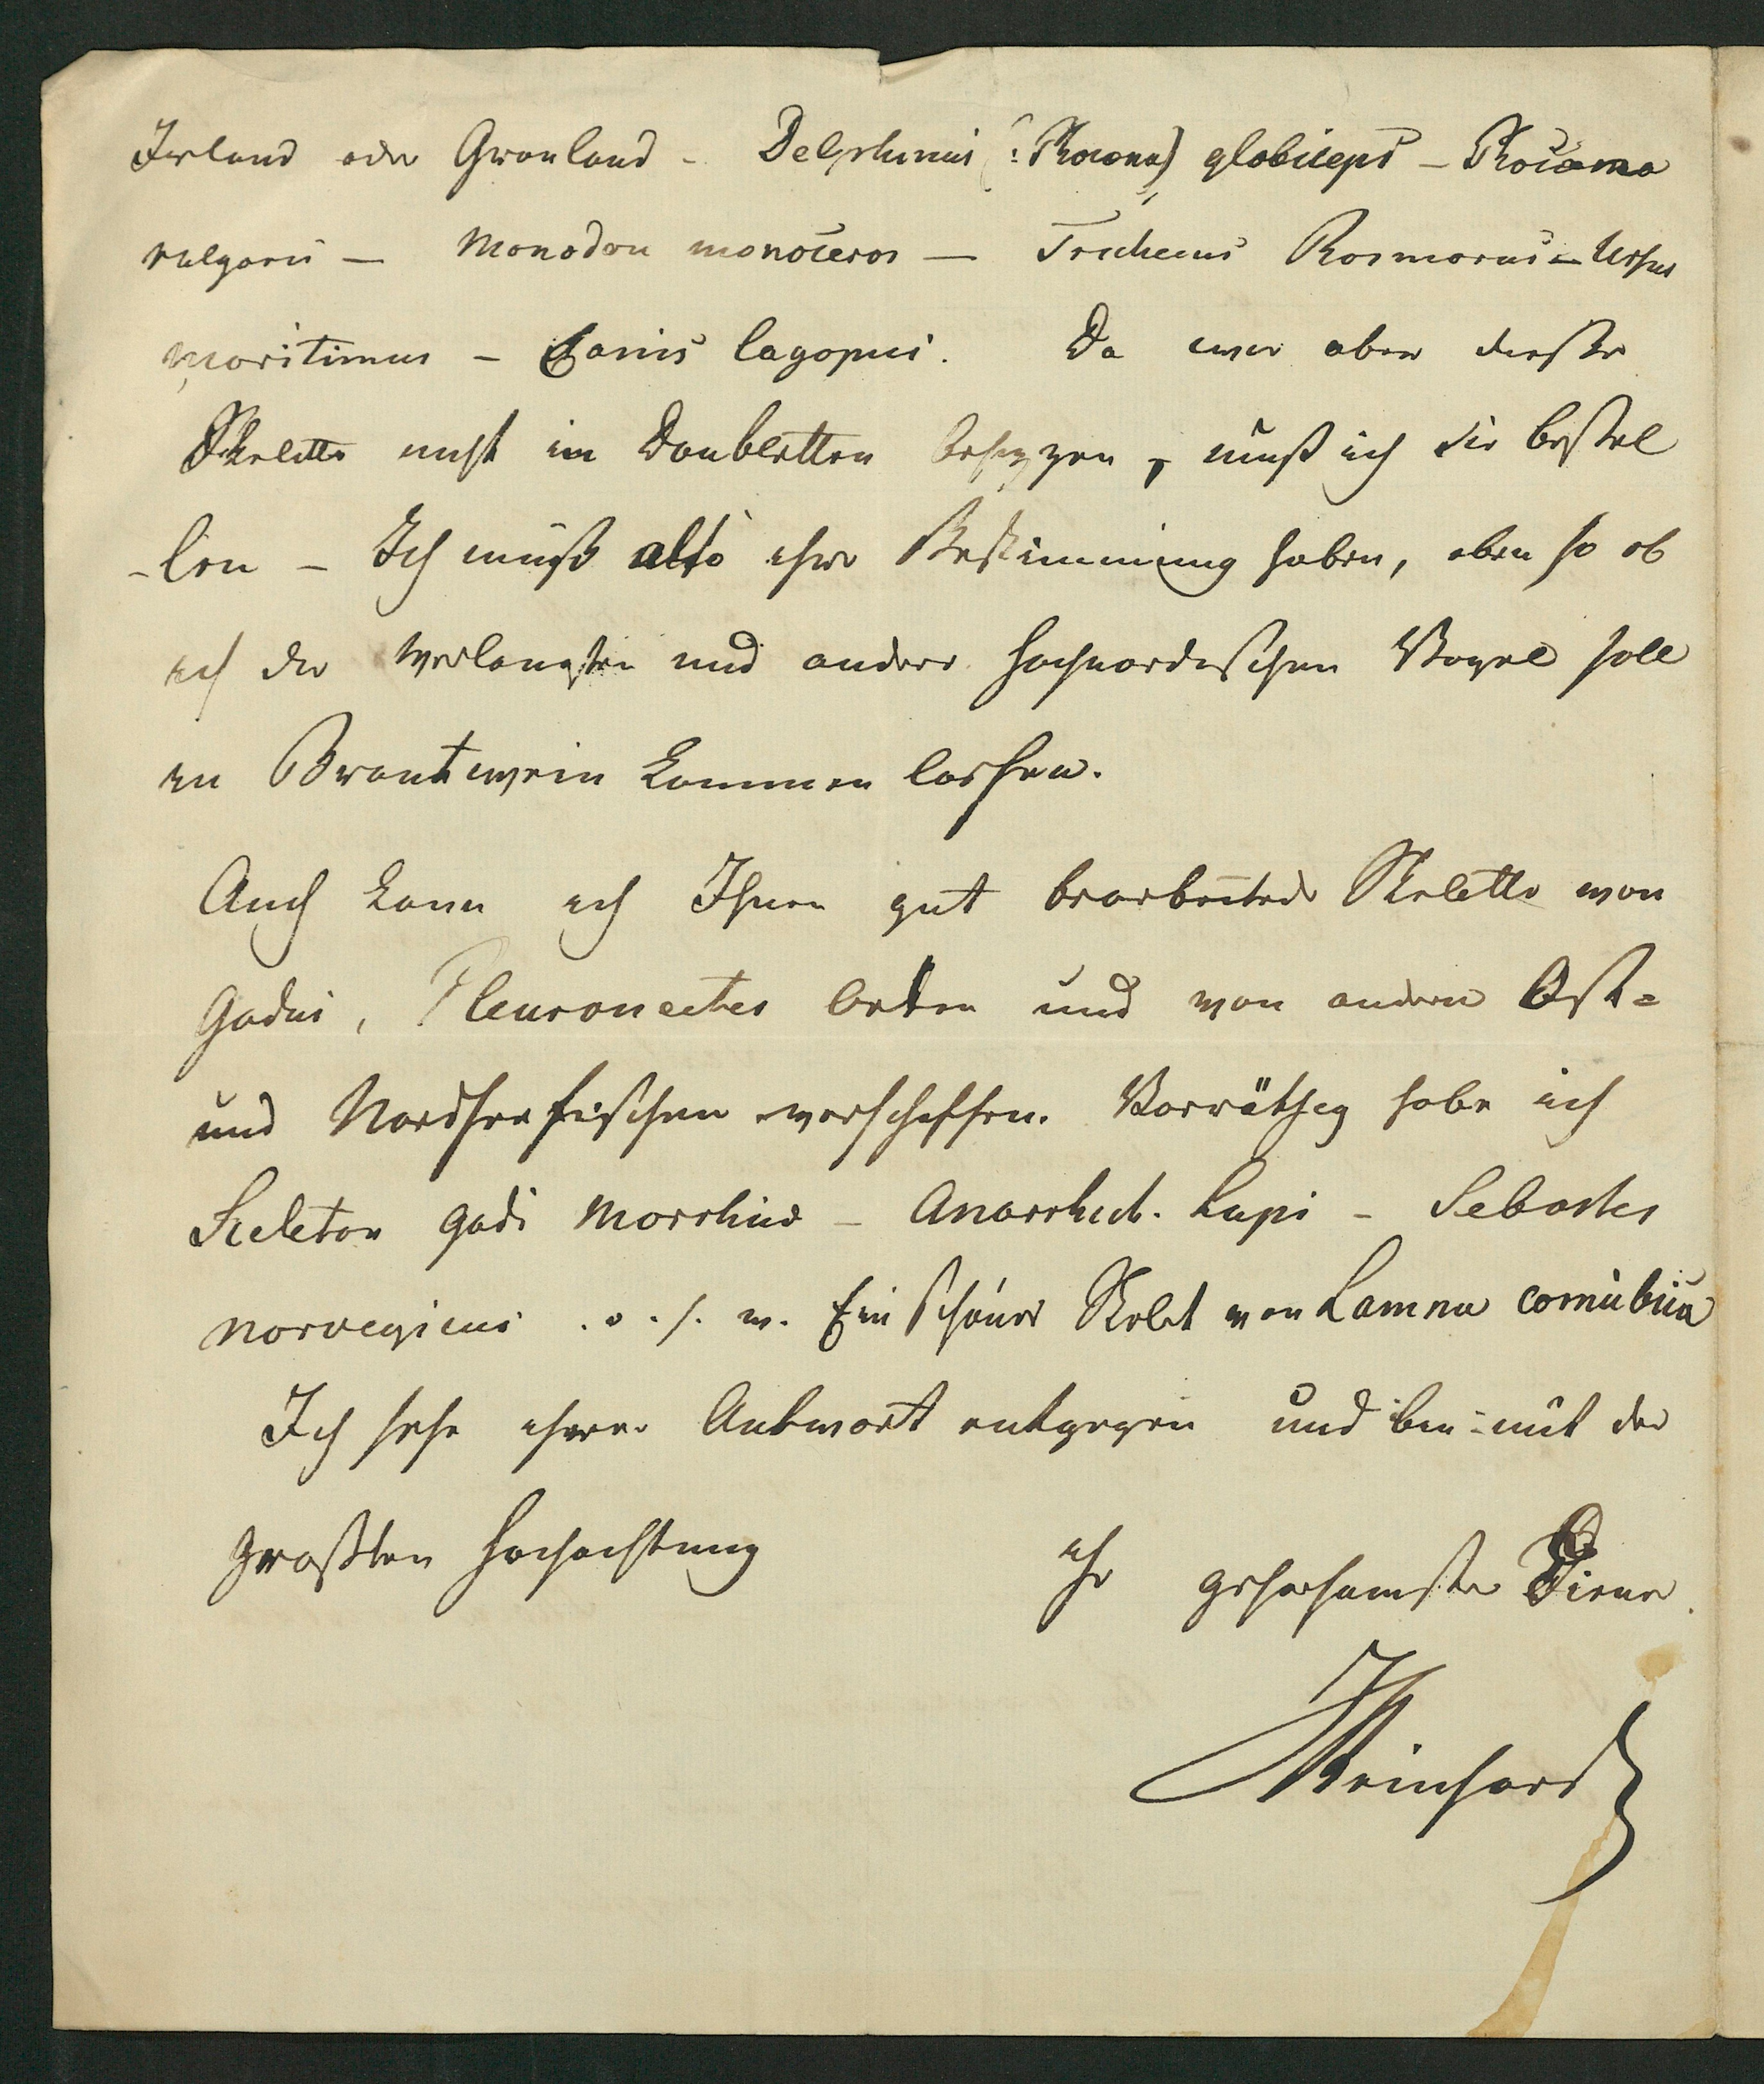 Island oder Gronland – Delphinus (: Phocæna) globiceps – Phocæna
vulgaris – Monodon monoceros – Trichecus Rosmarus – Ursus
maritimus – Canis lagopus. Da wir aber diesse
Skelette nicht in Doubletten besizzen, muß ich sie bestel
-len – Ich muß also ihre Bestimmung haben, eben so ob
ich die verlangten und andere hochnordischen Vogel soll
in Brantwein kommen lassen.
Auch kann ich Ihnen gut bearbeitede Skelette von
Gadus, Pleuronectes arten und von andern Ost=
und Nordseefischen verschaffen. Vorräthig habe ich
Sceleton gadi morrhuæ – Anarrhich. Lupi – Sebastes
norvegicus u. s. w. Ein schönes Skelet von Lamna cornubica
Ich sehe ihrer Antwort entgegen und bin mit der
großten Hochachtung
Ihr gehorsamste Diener
JReinhardt